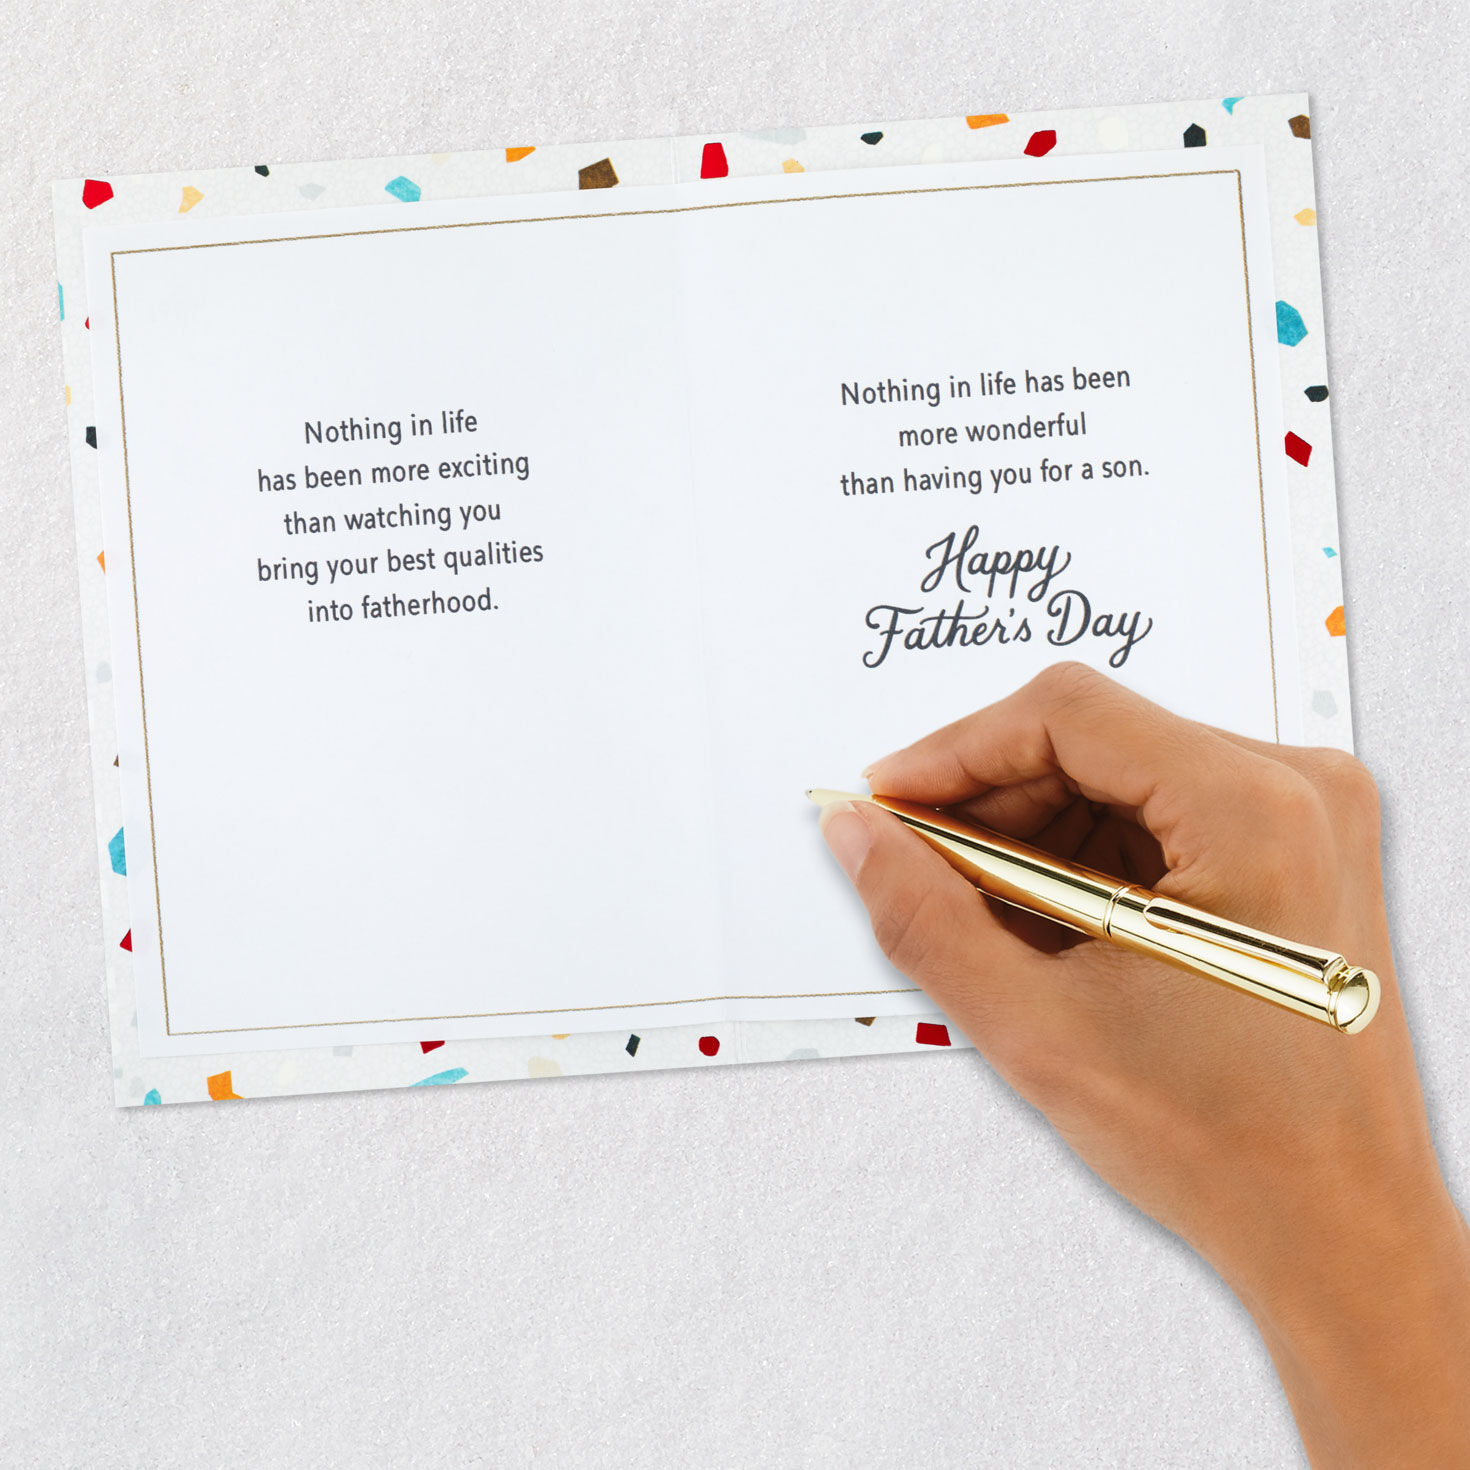 Nothing in life
has been more exciting
than watching you
bring your best qualities
into fatherhood.
Nothing in life has been
more wonderful
than having you for a son.
Happy
Father's Day